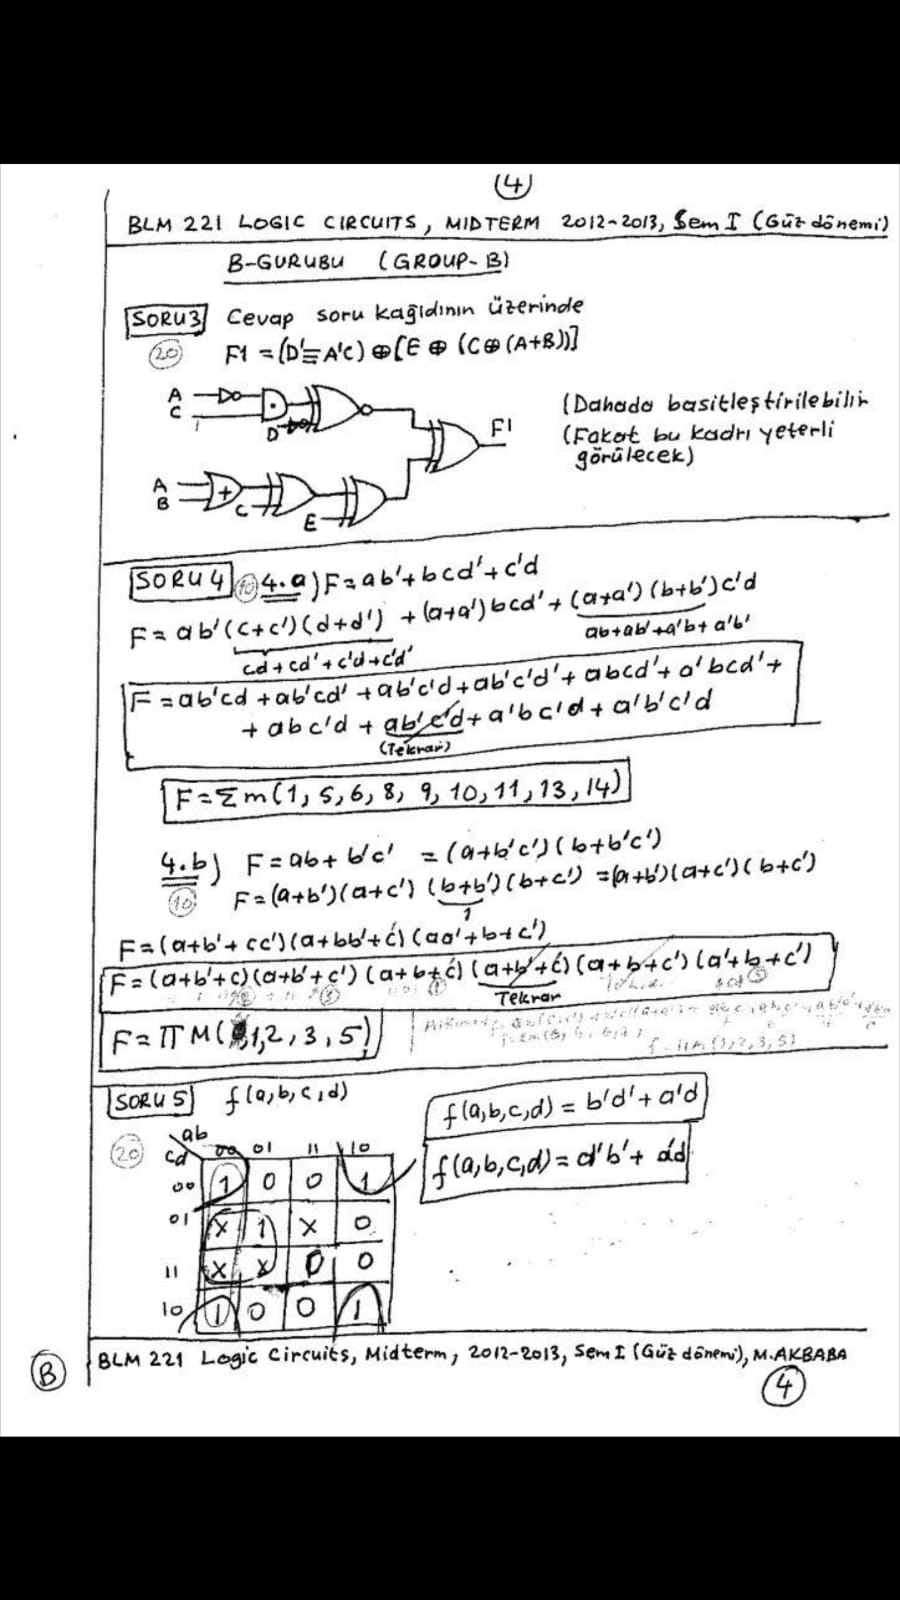 (4)
BLM 221 LOGIC CIRCUITS, MIDTERM 2012-2013, Sem I (Güz dönemi)
B-GURUBU (GROUP-B)
SORU3 Cevap soru kağıdının üzerinde
20
F1 = (D'≡A'C) ⊕ [E ⊕ (C⊕(A+B))]
A
C
D
F1
(Dahada basitleştirilebilir
(Fakat bu kadrı yeterli
görülecek)
A
B
+
C
E
SORU4 10 4.a) F = ab' + bcd' + c'd
F = ab'(c+c')(d+d') + (a+a')bcd' + (a+a')(b+b')c'd
cd+cd'+c'd+c'd'
ab+ab'+a'b+a'b'
F = ab'cd + ab'cd' + ab'c'd + ab'c'd' + abcd' + a'bcd' +
+ abc'd + ab'c'd + a'bc'd + a'b'c'd
(Tekrar)
F = Σm(1, 5, 6, 8, 9, 10, 11, 13, 14)
4.b) F = ab + b'c' = (a+b'c')(b+b'c')
10
F = (a+b')(a+c')(b+b')(b+c') = (a+b')(a+c')(b+c')
1
F = (a+b'+cc')(a+bb'+c')(aa'+b+c')
F = (a+b'+c)(a+b'+c')(a+b+c')(a+b'+c')(a+b+c')(a'+b+c')
Tekrar
F = ΠM(1,2,3,5)
f = ΠM(1,2,3,5)
SORU5 f(a,b,c,d)
20
f(a,b,c,d) = b'd' + a'd
f(a,b,c,d) = d'b' + a'd
ab
cd 00 01 11 10
00 1 0 0 1
01 X 1 X 0
11 X X 0 0
10 1 0 0 1
B
BLM 221 Logic Circuits, Midterm, 2012-2013, Sem I (Güz dönemi), M.AKBABA
4